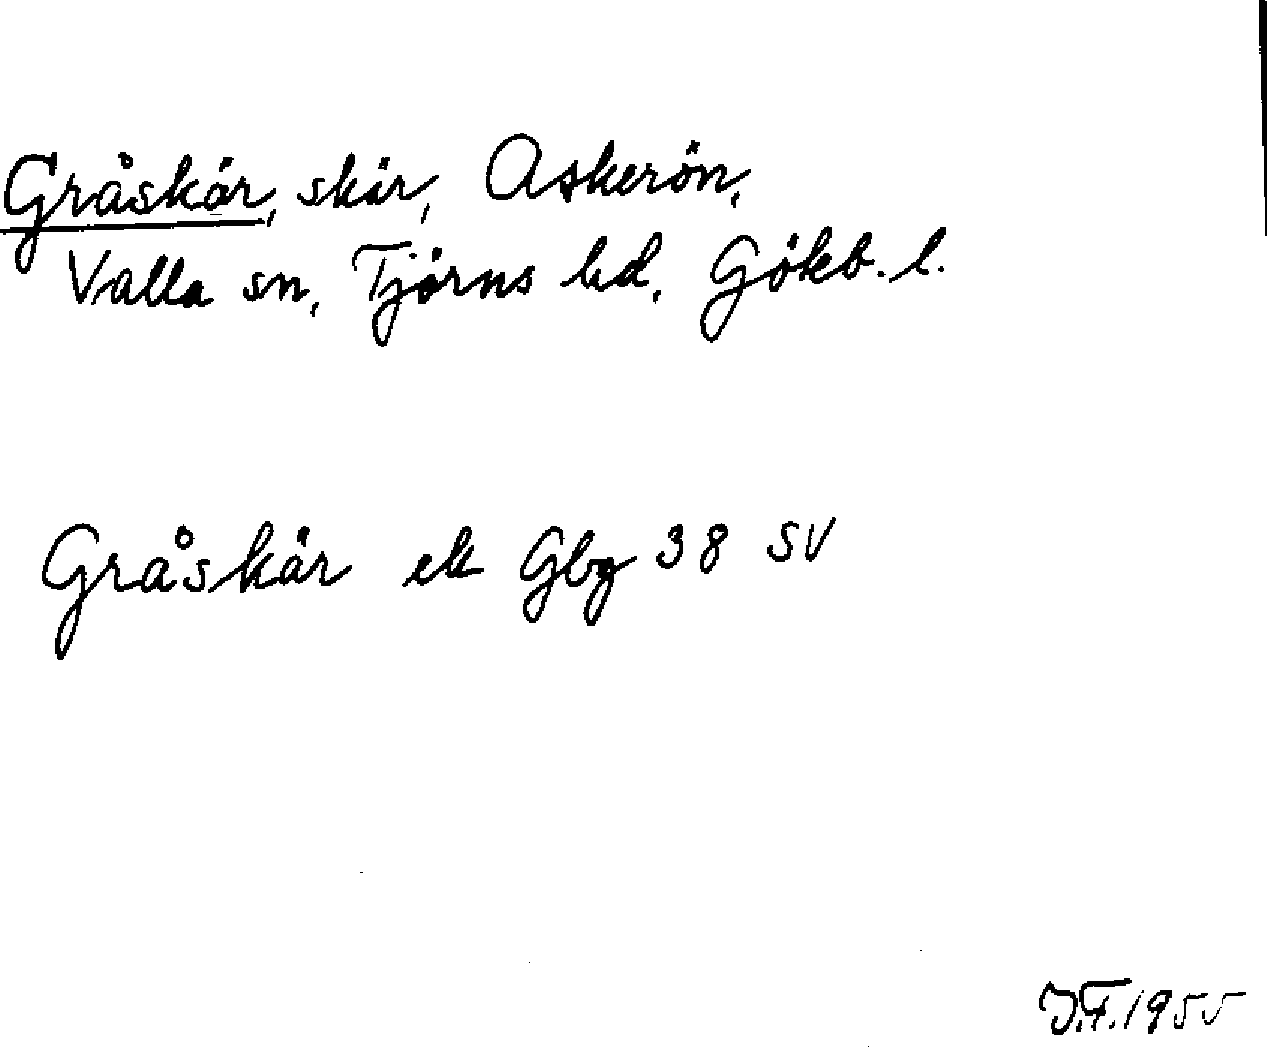 Gråskär, skär, Askerön,
Valla sn, Tjörns hd, Gökb. l.
Gråskär ek Gbg 38 SV
J.F. 1955